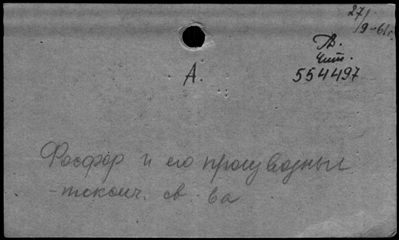 27/
9-61г.
А.
554497
Фосфор и его производные
-токсич. св-ва